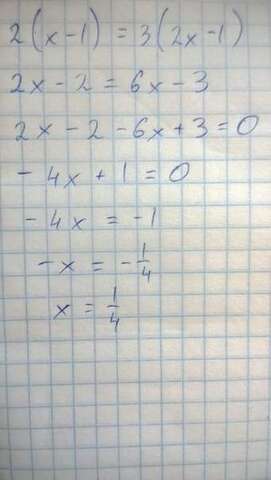 2(x-1) = 3(2x-1)
2x - 2 = 6x - 3
2x - 2 - 6x + 3 = 0
- 4x + 1 = 0
- 4x = -1
- x = - 1/4
x = 1/4